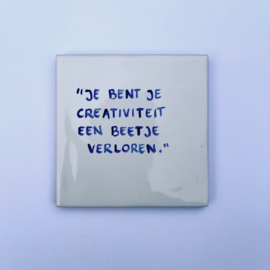 "JE BENT JE
CREATIVITEIT
EEN BEETJE
VERLOREN."